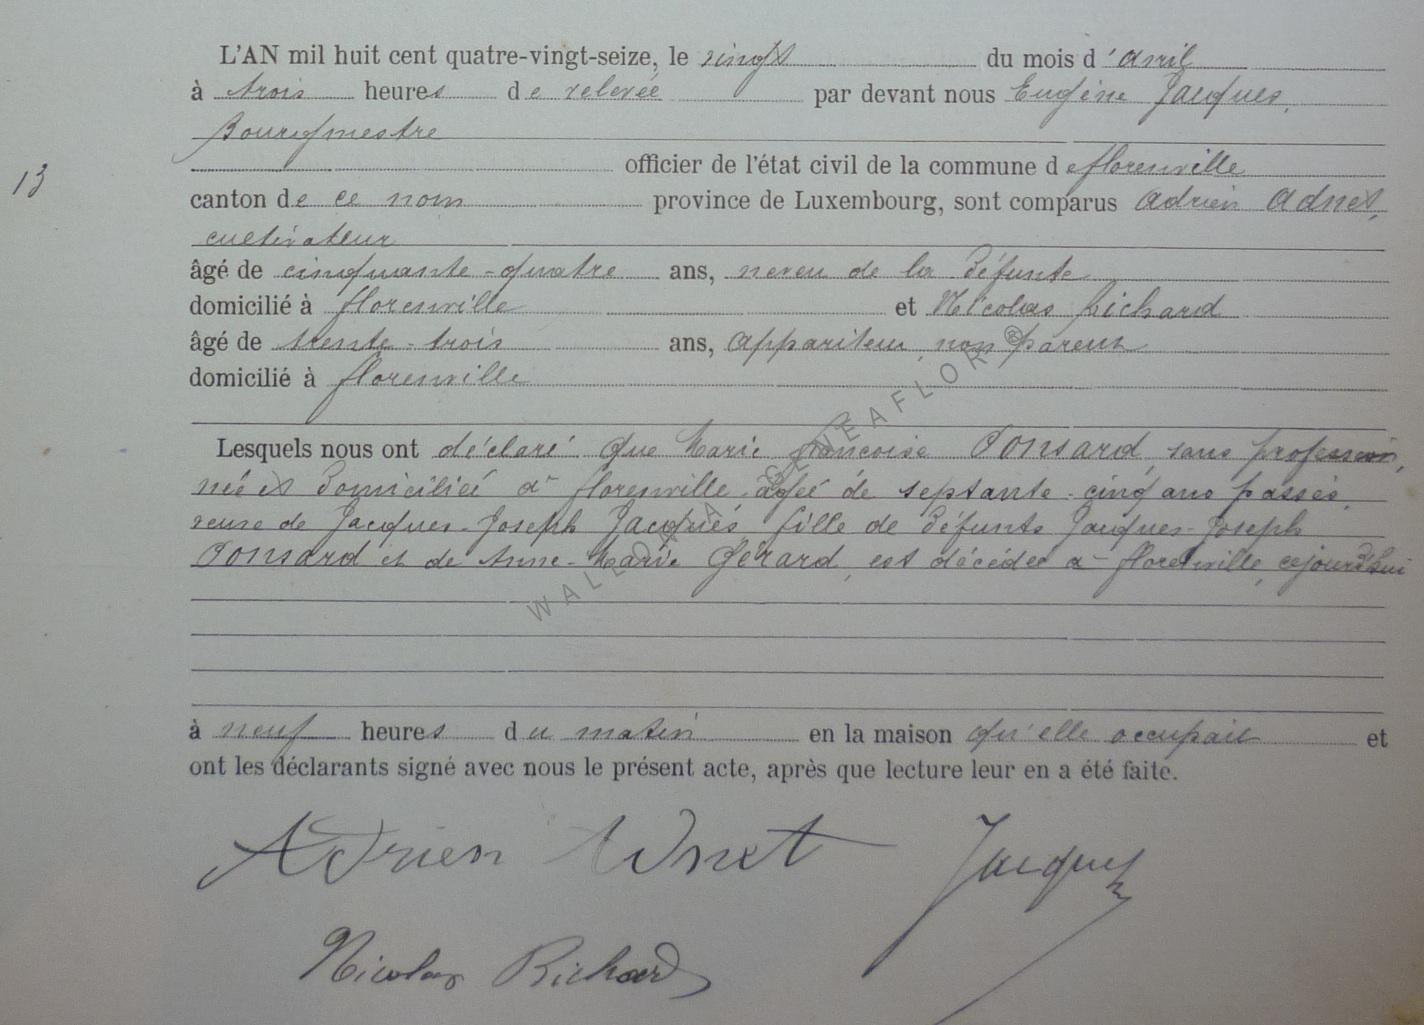 L'AN mil huit cent quatre-vingt-seize, le vingt du mois d'avril
à trois heures de relevée par devant nous Eugène Jacques,
Bourgmestre
officier de l'état civil de la commune de florenville
13
canton de ce nom province de Luxembourg, sont comparus Adrien Adnet,
cultivateur
âgé de cinquante-quatre ans, neveu de la défunte
domicilié à florenville et Nicolas Richard
âgé de trente-trois ans, appariteur, non parent
domicilié à florenville
Lesquels nous ont déclaré que Marie françoise Ponsard, sans profession,
née et domiciliée à florenville âgée de septante-cinq ans passés,
veuve de Jacques-Joseph Jacques fille de défunts Jacques-Joseph
Ponsard et de Anne-Marie Gérard, est décédée à florenville, cejourd'hui
à neuf heures du matin en la maison qu'elle occupait et
ont les déclarants signé avec nous le présent acte, après que lecture leur en a été faite.
Adrien Adnet Jacques
Nicolas Richard
WALLONIA GENEAFLOR ®